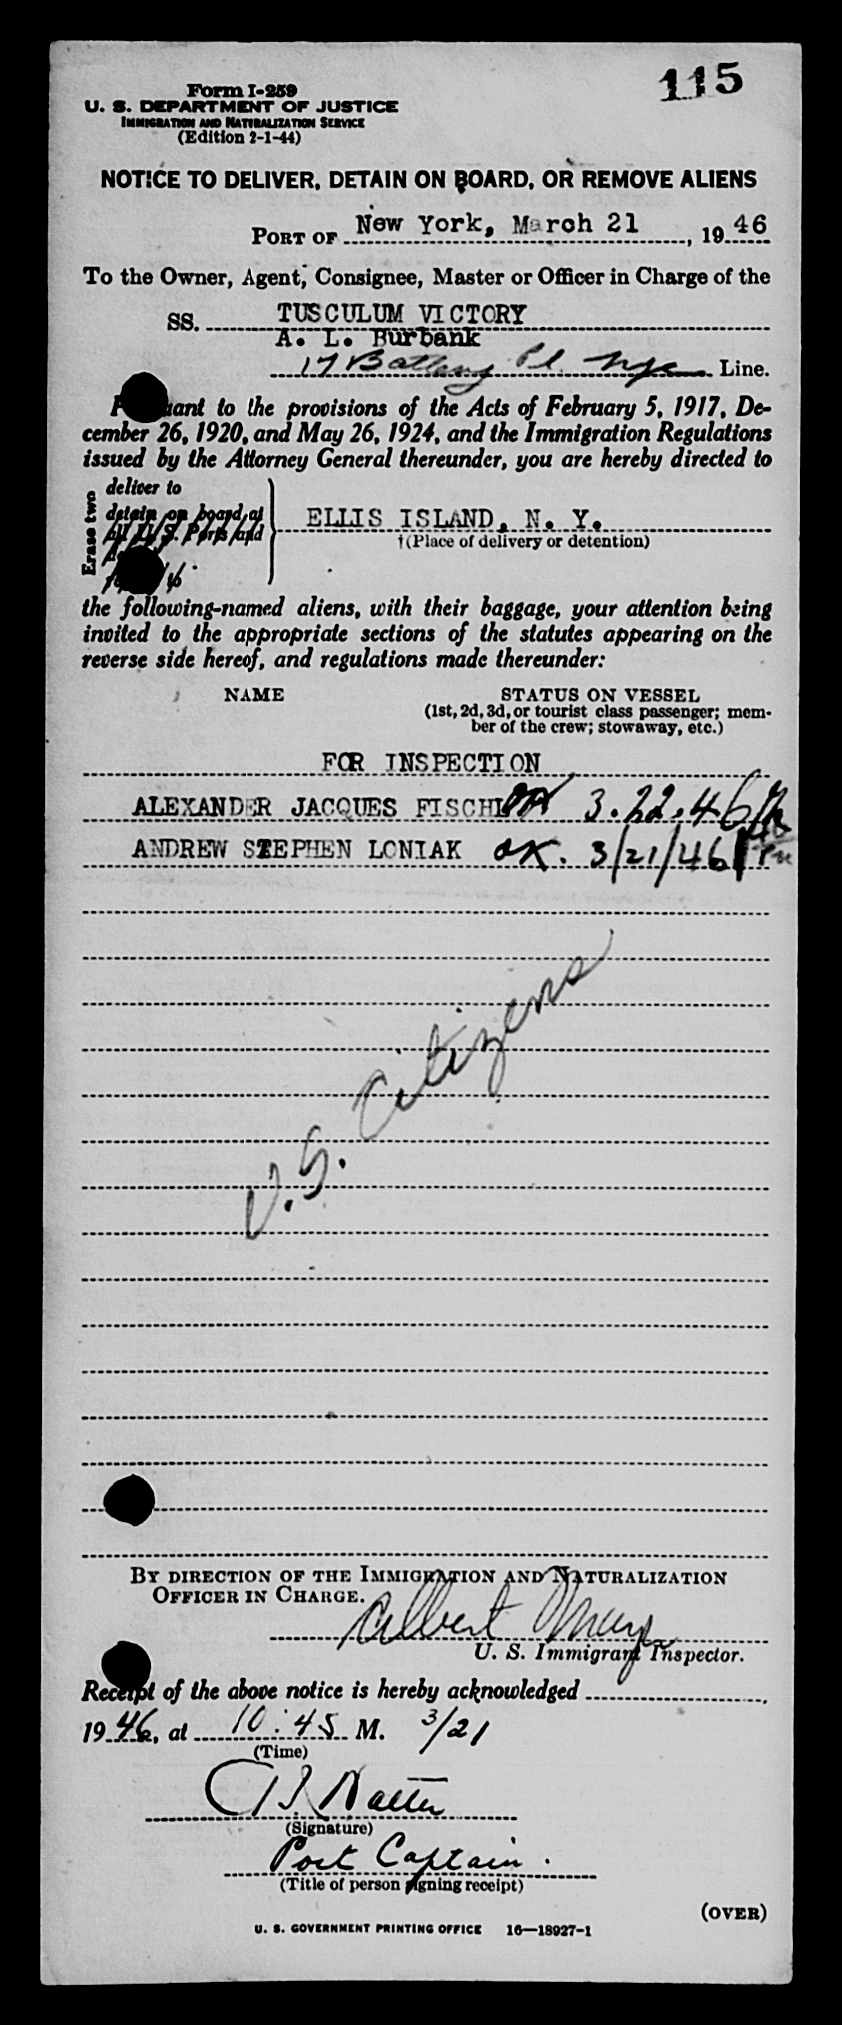 115
Form I-259
U. S. DEPARTMENT OF JUSTICE
IMMIGRATION AND NATURALIZATION SERVICE
(Edition 2-1-44)
NOTICE TO DELIVER, DETAIN ON BOARD, OR REMOVE ALIENS
PORT OF New York, March 21, 1946
To the Owner, Agent, Consignee, Master or Officer in Charge of the
SS. TUSCULUM VICTORY
A. L. Burbank
17 Battery Pl. NYC Line.
Pursuant to the provisions of the Acts of February 5, 1917, De-
cember 26, 1920, and May 26, 1924, and the Immigration Regulations
issued by the Attorney General thereunder, you are hereby directed to
Erase two
deliver to
detain on board at
all U. S. Ports and
ELLIS ISLAND, N. Y.
†(Place of delivery or detention)
the following-named aliens, with their baggage, your attention being
invited to the appropriate sections of the statutes appearing on the
reverse side hereof, and regulations made thereunder:
NAME STATUS ON VESSEL
(1st, 2d, 3d, or tourist class passenger; mem-
ber of the crew; stowaway, etc.)
FOR INSPECTION
ALEXANDER JACQUES FISCHL 3.22.46
ANDREW STEPHEN LONIAK OK. 3/21/46
U.S. Citizens
BY DIRECTION OF THE IMMIGRATION AND NATURALIZATION
OFFICER IN CHARGE.
Albert
U. S. Immigrant Inspector.
Receipt of the above notice is hereby acknowledged
1946, at 10:45 M. 3/21
(Time)
(Signature)
Port Captain.
(Title of person signing receipt)
(OVER)
U. S. GOVERNMENT PRINTING OFFICE 16—18927-1